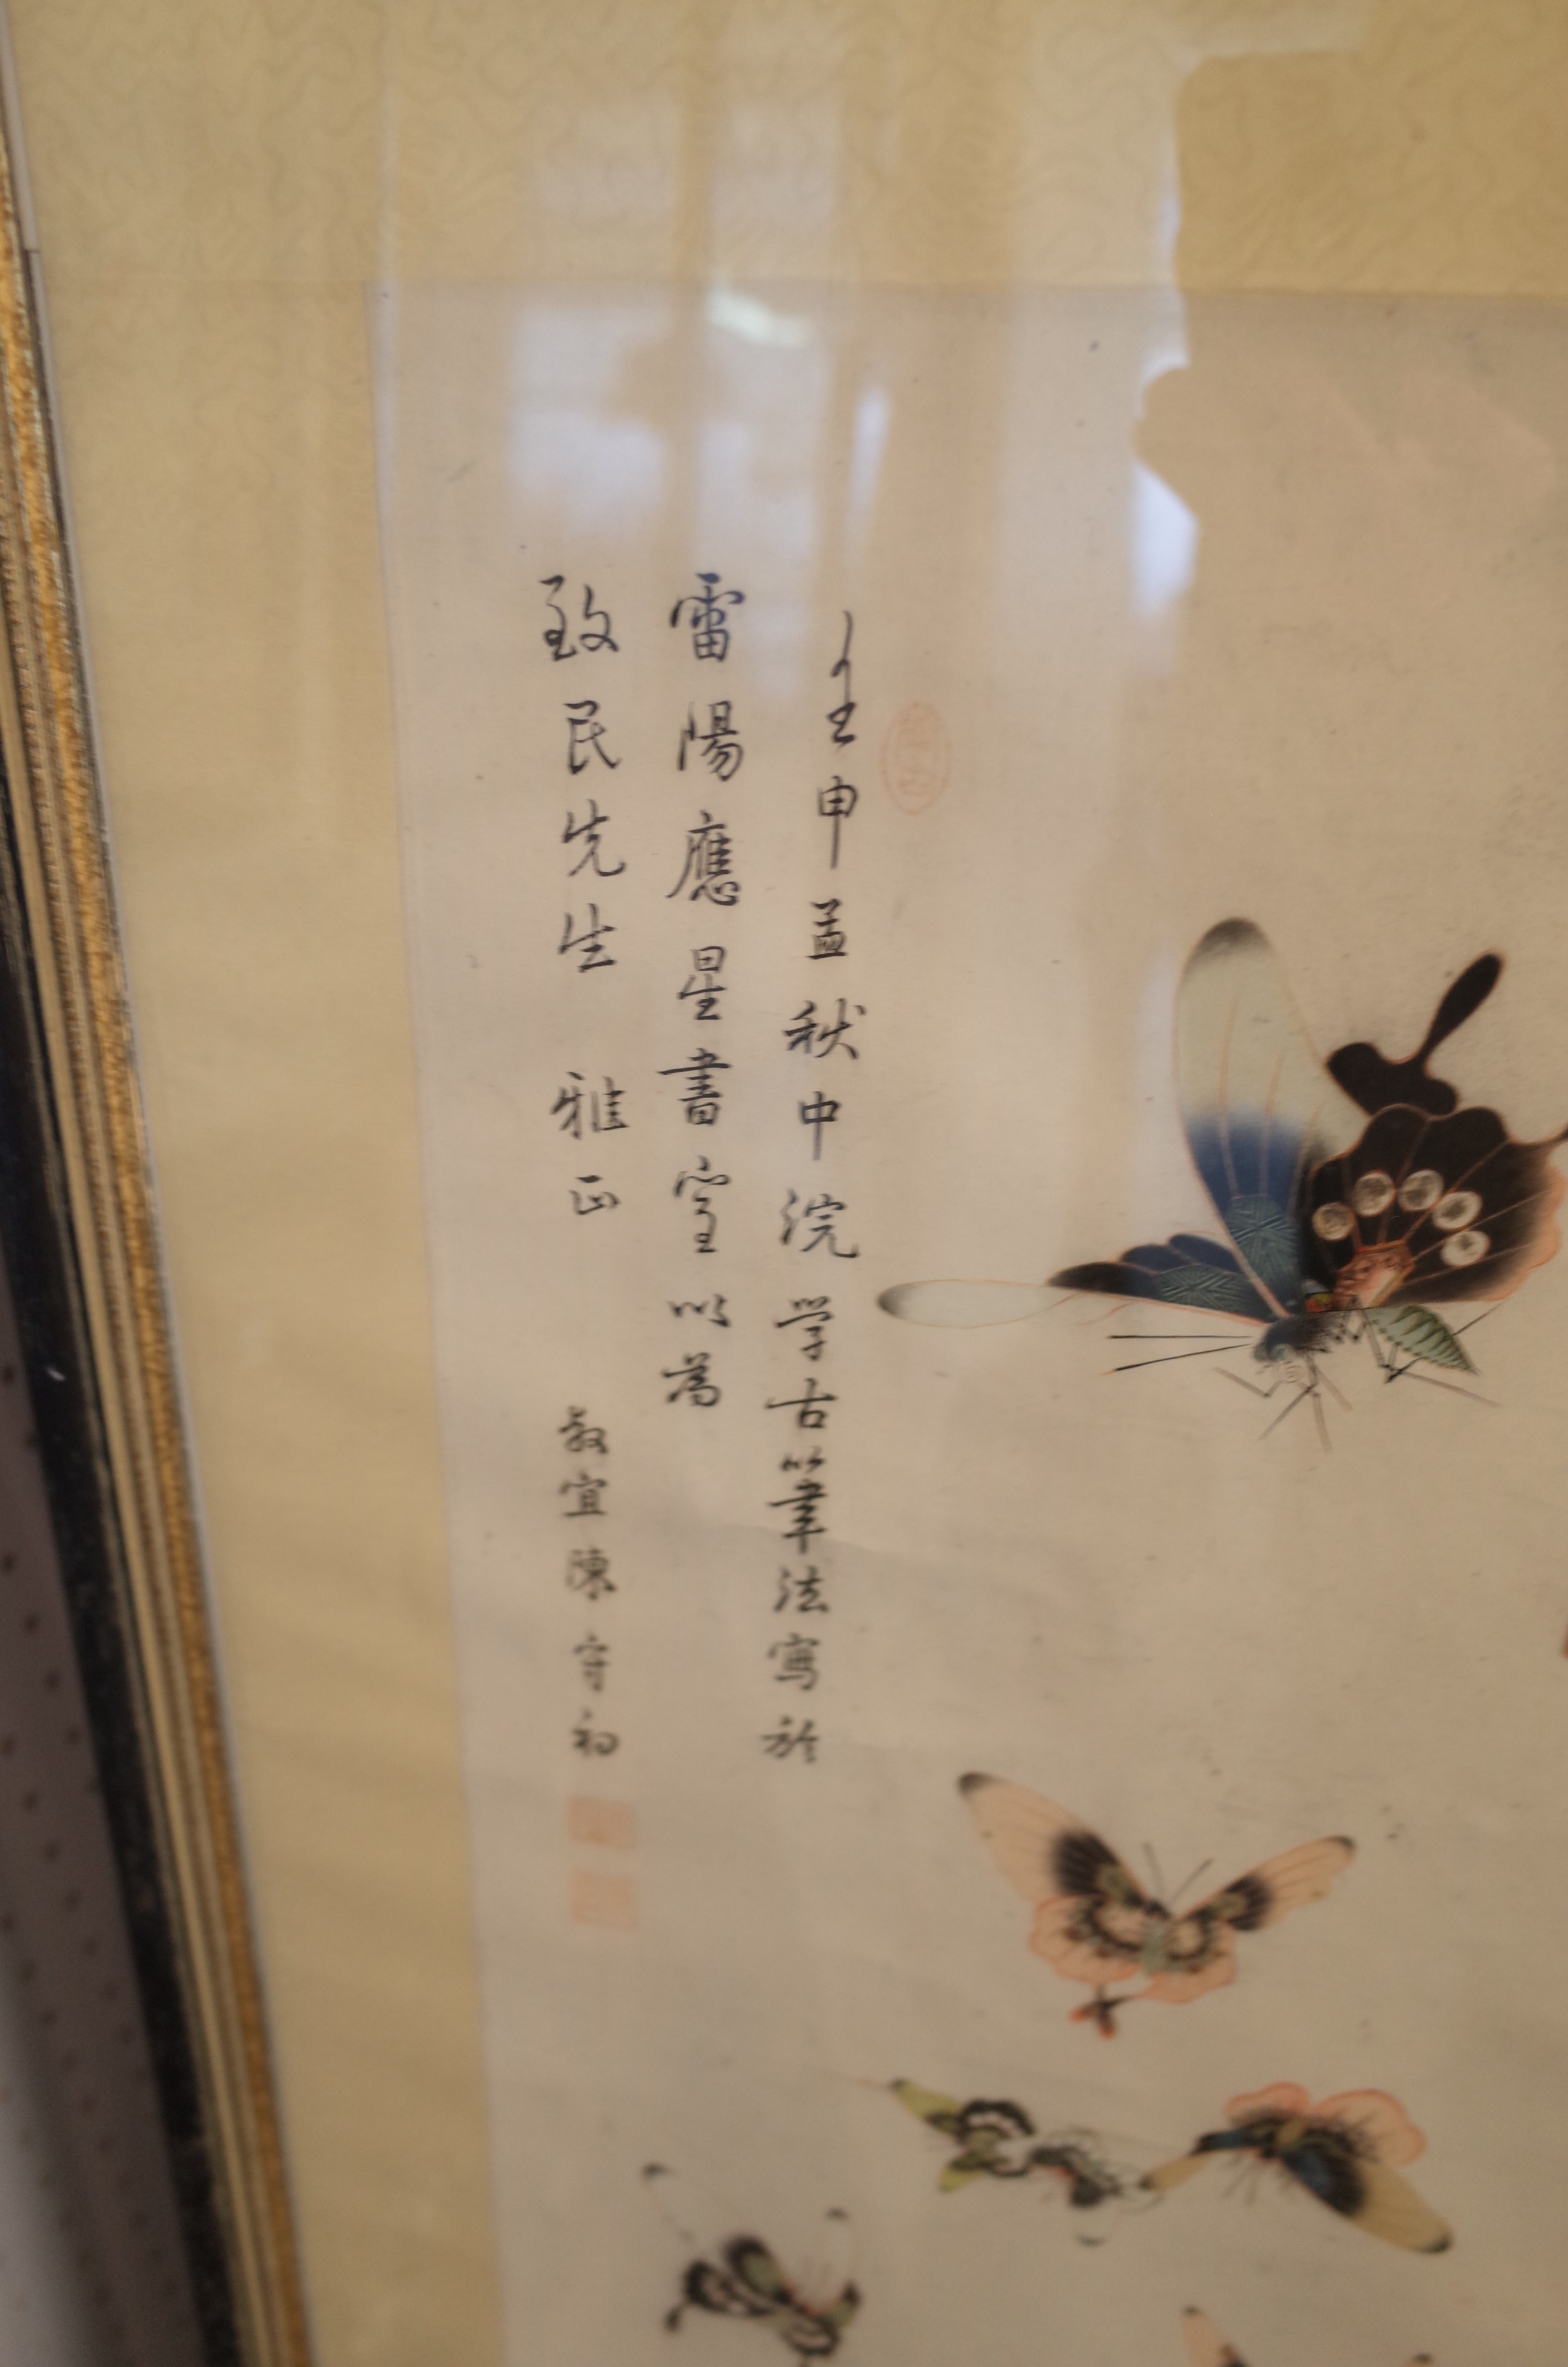 壬申孟秋中浣学古人筆法寫於
雷陽應星書室以為
致民先生 雅正
敘宜陳守初